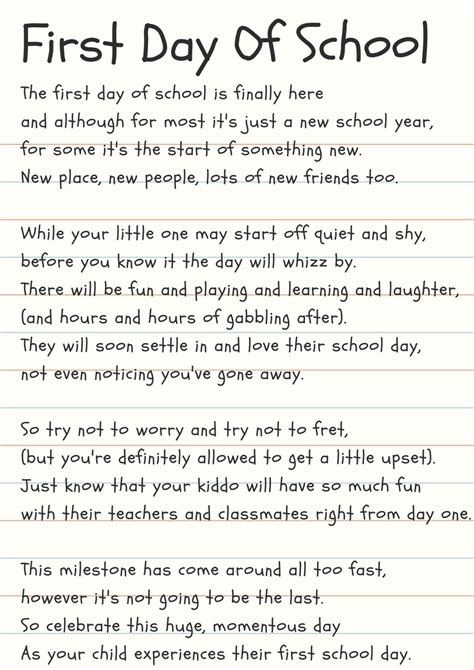 First Day Of School
The first day of school is finally here
and although for most it's just a new school year,
for some it's the start of something new.
New place, new people, lots of new friends too.

While your little one may start off quiet and shy,
before you know it the day will whizz by.
There will be fun and playing and learning and laughter,
(and hours and hours of gabbling after).
They will soon settle in and love their school day,
not even noticing you've gone away.

So try not to worry and try not to fret,
(but you're definitely allowed to get a little upset).
Just know that your kiddo will have so much fun
with their teachers and classmates right from day one.

This milestone has come around all too fast,
however it's not going to be the last.
So celebrate this huge, momentous day
As your child experiences their first school day.